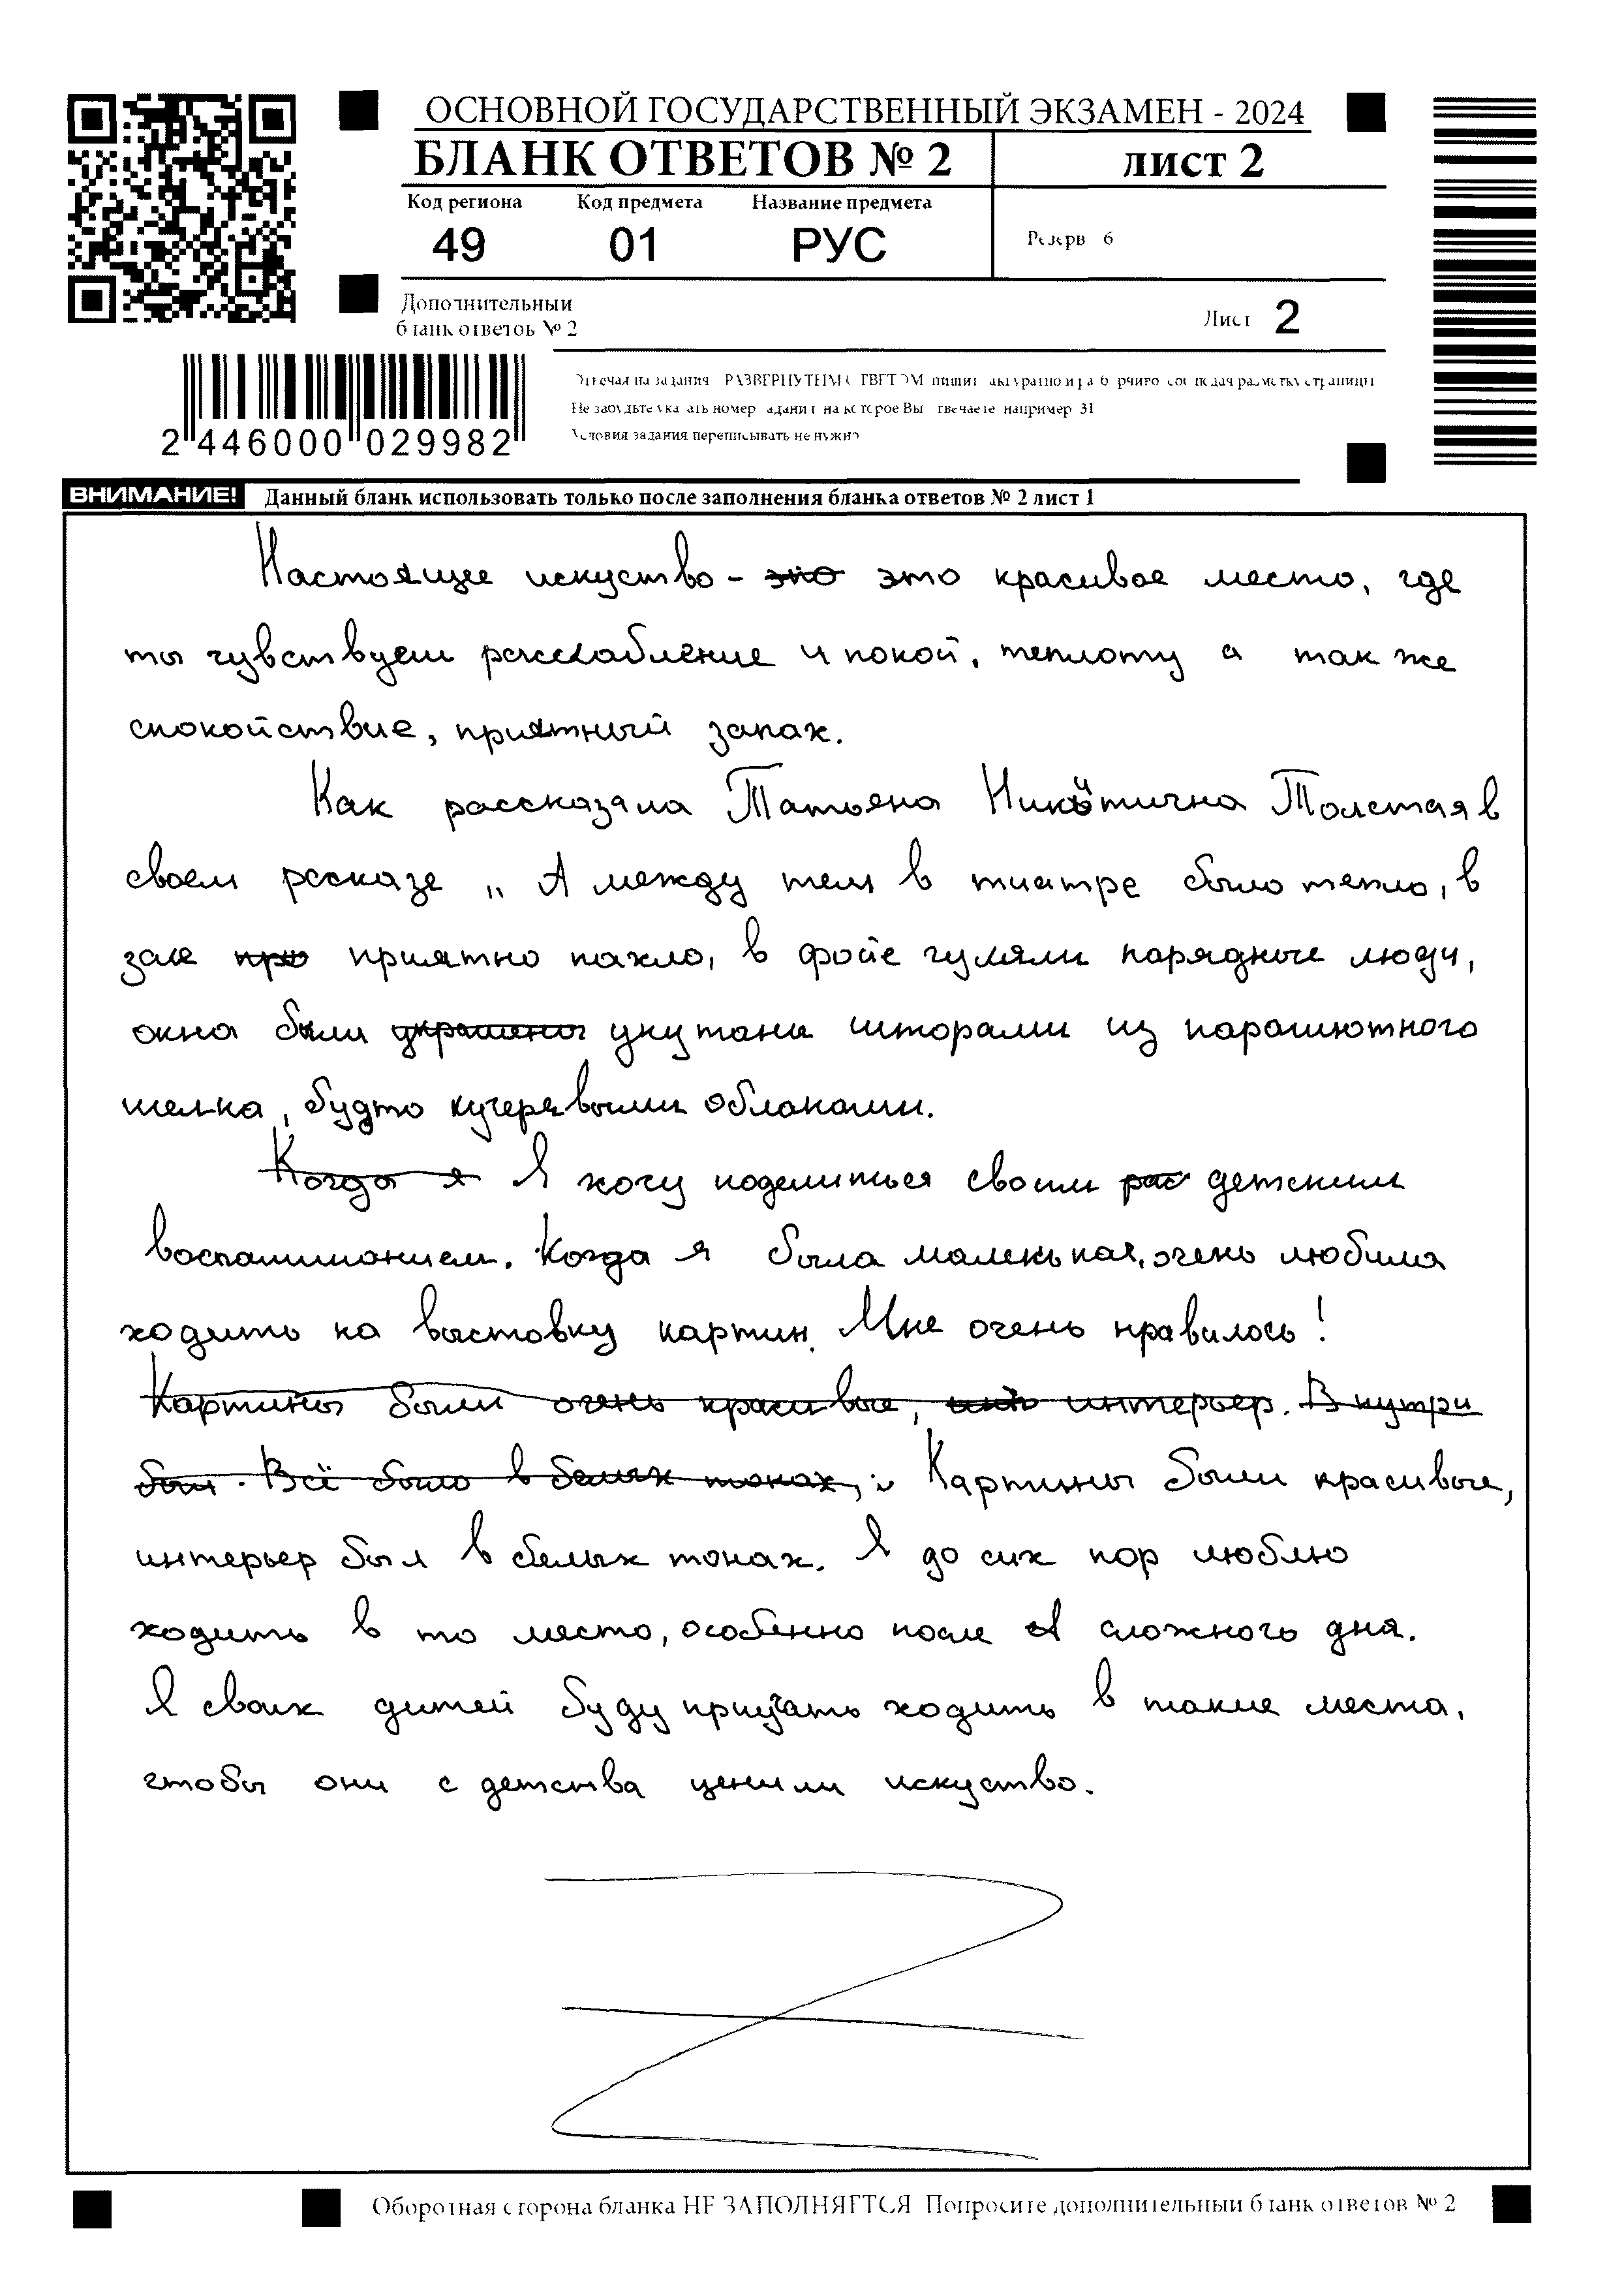 ОСНОВНОЙ ГОСУДАРСТВЕННЫЙ ЭКЗАМЕН - 2024
БЛАНК ОТВЕТОВ № 2 лист 2
Код региона Код предмета Название предмета
49 01 РУС Резерв 6
Дополнительный
бланк ответов № 2 Лист 2
Не забудьте указать номер задания на которое Вы отвечаете например 31
Условия задания переписывать не нужно
2 446000 029982
ВНИМАНИЕ! Данный бланк использовать только после заполнения бланка ответов № 2 лист 1
Настоящее искуство - это это красивое место, где
ты чувствуеш расслабление и покой, теплоту а так же
спокойствие, приятный запах.
Как рассказала Татьяна Никитична Толстая в
своем рсказе „ А между тем в тиатре было тепло, в
зале про приятно пахло, в фойе гуляли нарядные люди,
окна были украшены укутаны шторами из парашютного
шелка, будто кучерявыми облаками.
Когда я Я хочу поделиться своим рас детским
воспаминанием. Когда я была маленькая, очень любила
ходить на выставку картин. Мне очень нравилось!
Картины были очень красивые, интерьер. Внутри
был. Всё было в белых тонах, Картины были красивые,
интерьер был в белых тонах. Я до сих пор люблю
ходить в то место, особенно после сложного дня.
Я своих дитей буду приучать ходить в такие места,
чтобы они с детства ценили искуство.
Оборотная сторона бланка НЕ ЗАПОЛНЯЕТСЯ Попросите дополнительный бланк ответов № 2